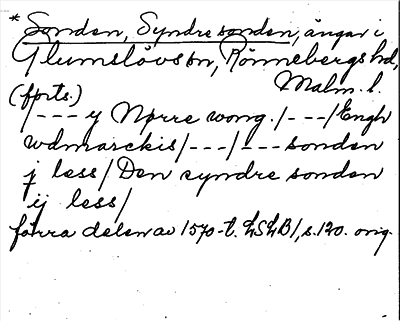 * Sonden, Syndre sonden, ängar i
Glumslövs sn, Rönnebergs hd,
Malm. l.
(forts.)
/--- y Nørre wong./---/Engh
wdmarckis/---/---sonden
j less/Den syndre sonden
ij less/
förra delen av 1570-t. LSLB1, s.120. orig.